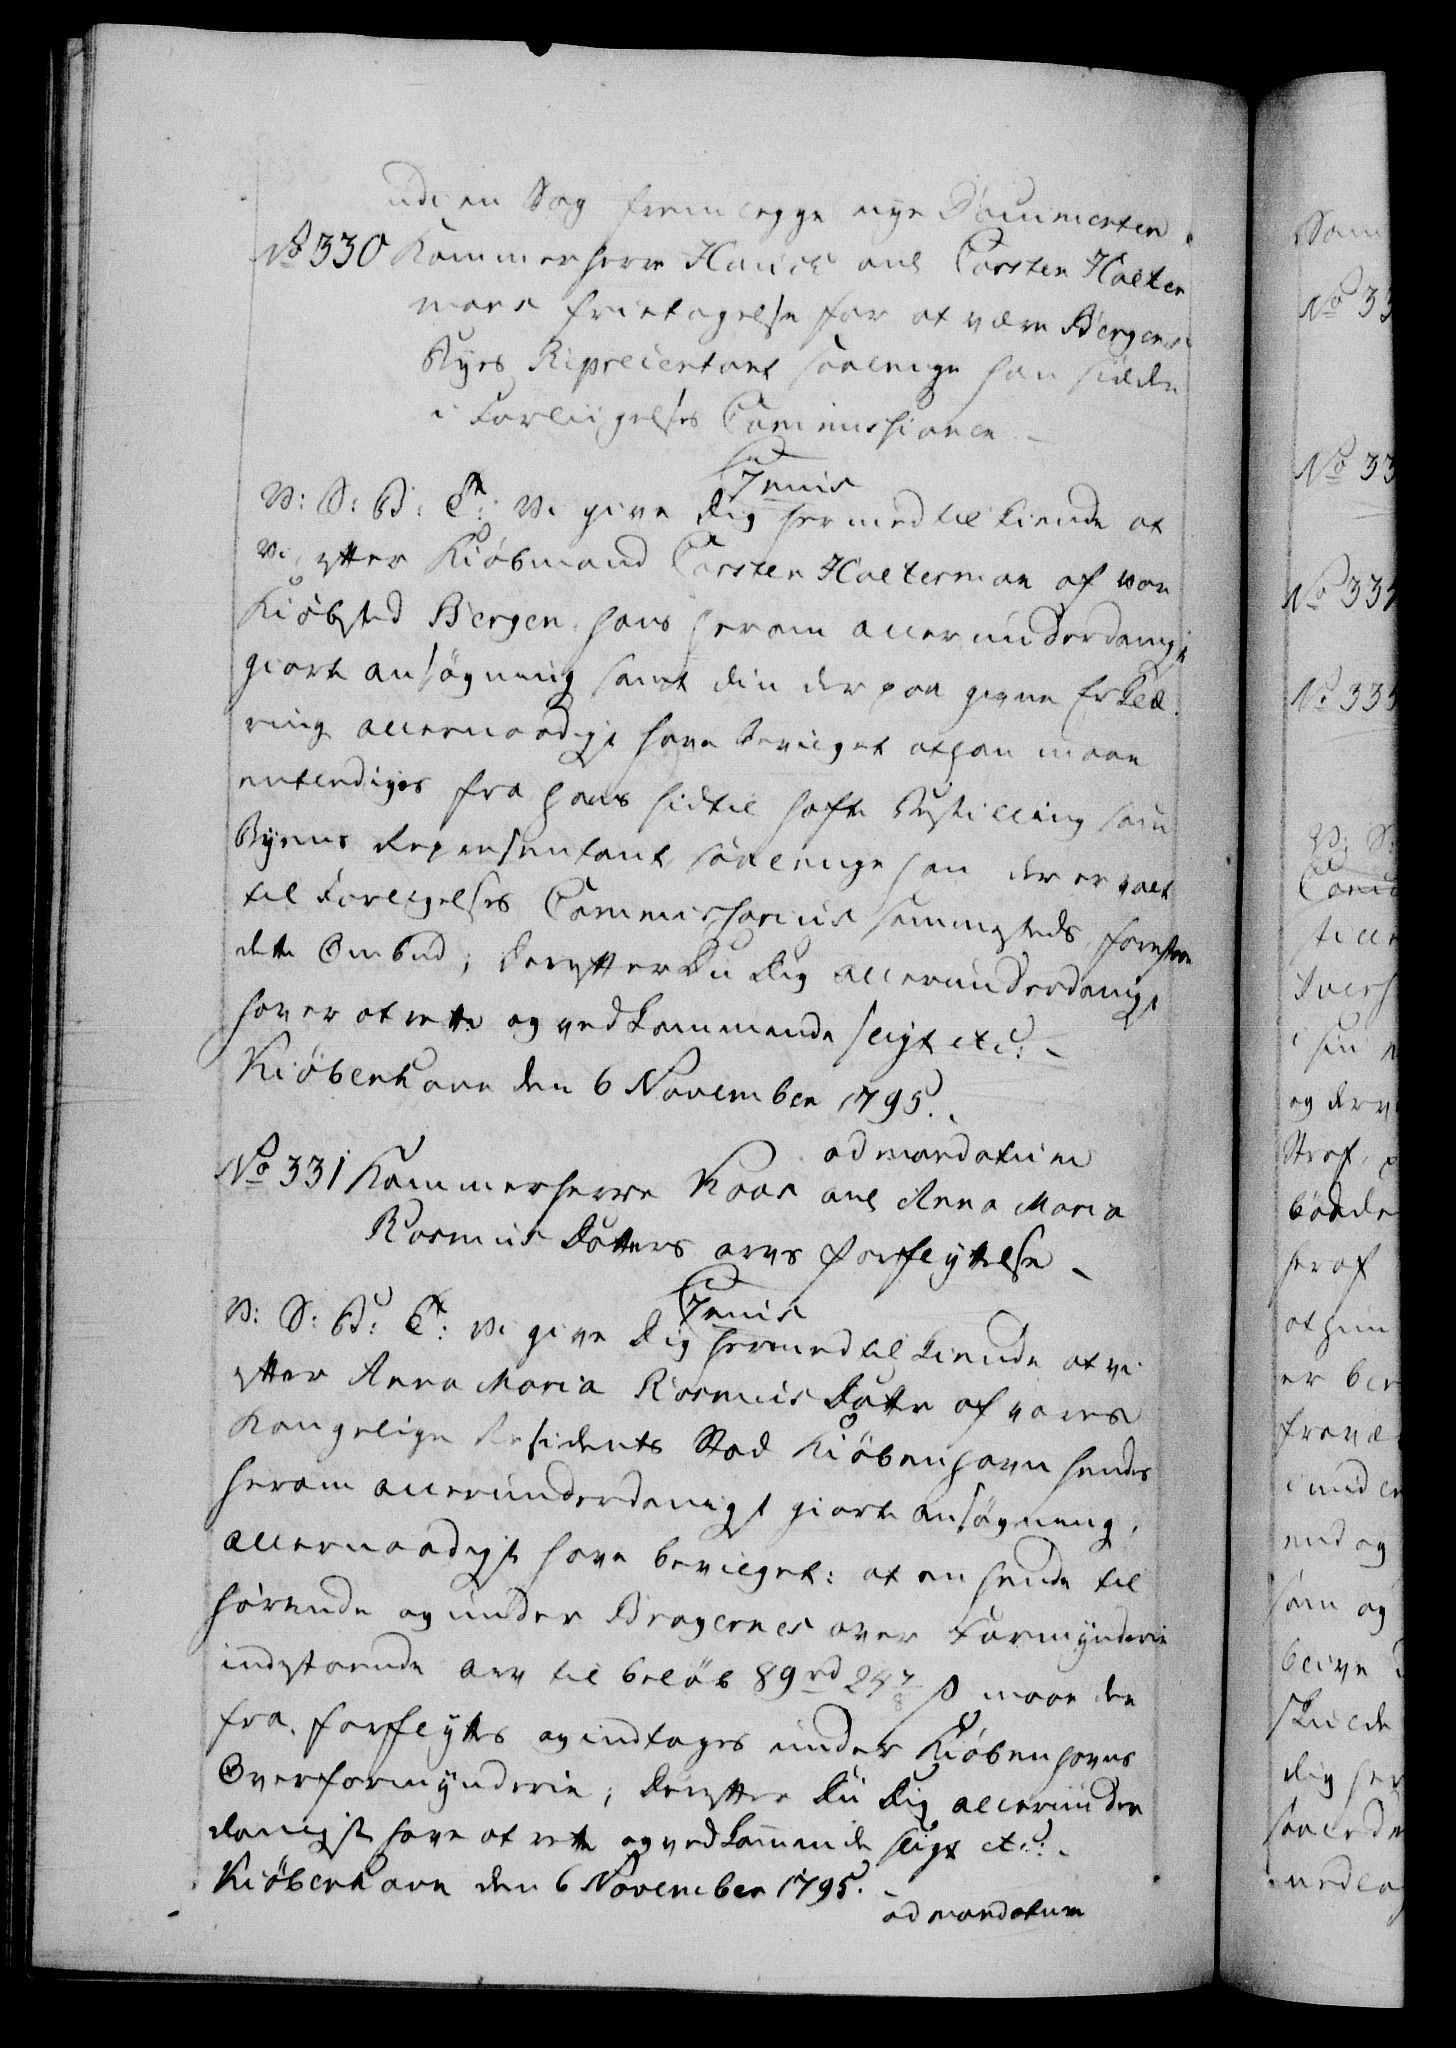 udi en Sag fremlegge nye Documenter.
No 330 Kammerherre Hauch anl Carsten Holter
mans fritagelse for at være Bergens
Byes Repræsentant saalenge han sidder
i Forligelses Commissionen. –
V: S: G: T: Vi give Dig hermed til kiende at
Cenis
vi, efter Kiøbmand Carsten Holterman af vor
Kiøbsted Bergen, hans herom allerunderdanigst
giorte ansøgning samt din der paa givne Erklæ
ring allernaadigst have bevilget at han maae
entlediges fra hans hidtil hafte Bestilling som
Byens Representant saalenge han der er valt
til Forligelses Commissarius sammesteds, forestaar
dette Ombud; Derefter Du Dig allerunderdanigst
haver at rette og vedkommende sligt etc: –
Kiøbenhavn den 6 November 1795.
ad mandatum
No 331 Kammerherre Kaas anl Anna Maria
Rasmus Datters arvs forflyttelse –
V: S: G: T: Vi give Dig hermed til kiende at vi
Cenis
efter Anna Maria Rasmus Datter af vores
Kongelige Residents Stad Kiøbenhavn hendes
herom allerunderdanigst giorte ansøgning,
allernaadigst have bevilget: at en hende til
hørende og under Bragernes over Formynderie
indestaaende arv til beløb 89 rd 24 7/8 s maae der
fra forflyttes og indtages under Kiøbenhavns
Overformynderie; Derefter Du Dig allerunder
danigst have at rette og vedkommende sligt etc: –
Kiøbenhavn den 6 November 1795.
ad mandatum
Sam
No 33
No 33
No 33
No 333
V: S:
og derv
Straf
heraf
at hun
er ber
end og
som og
blive
Dig her